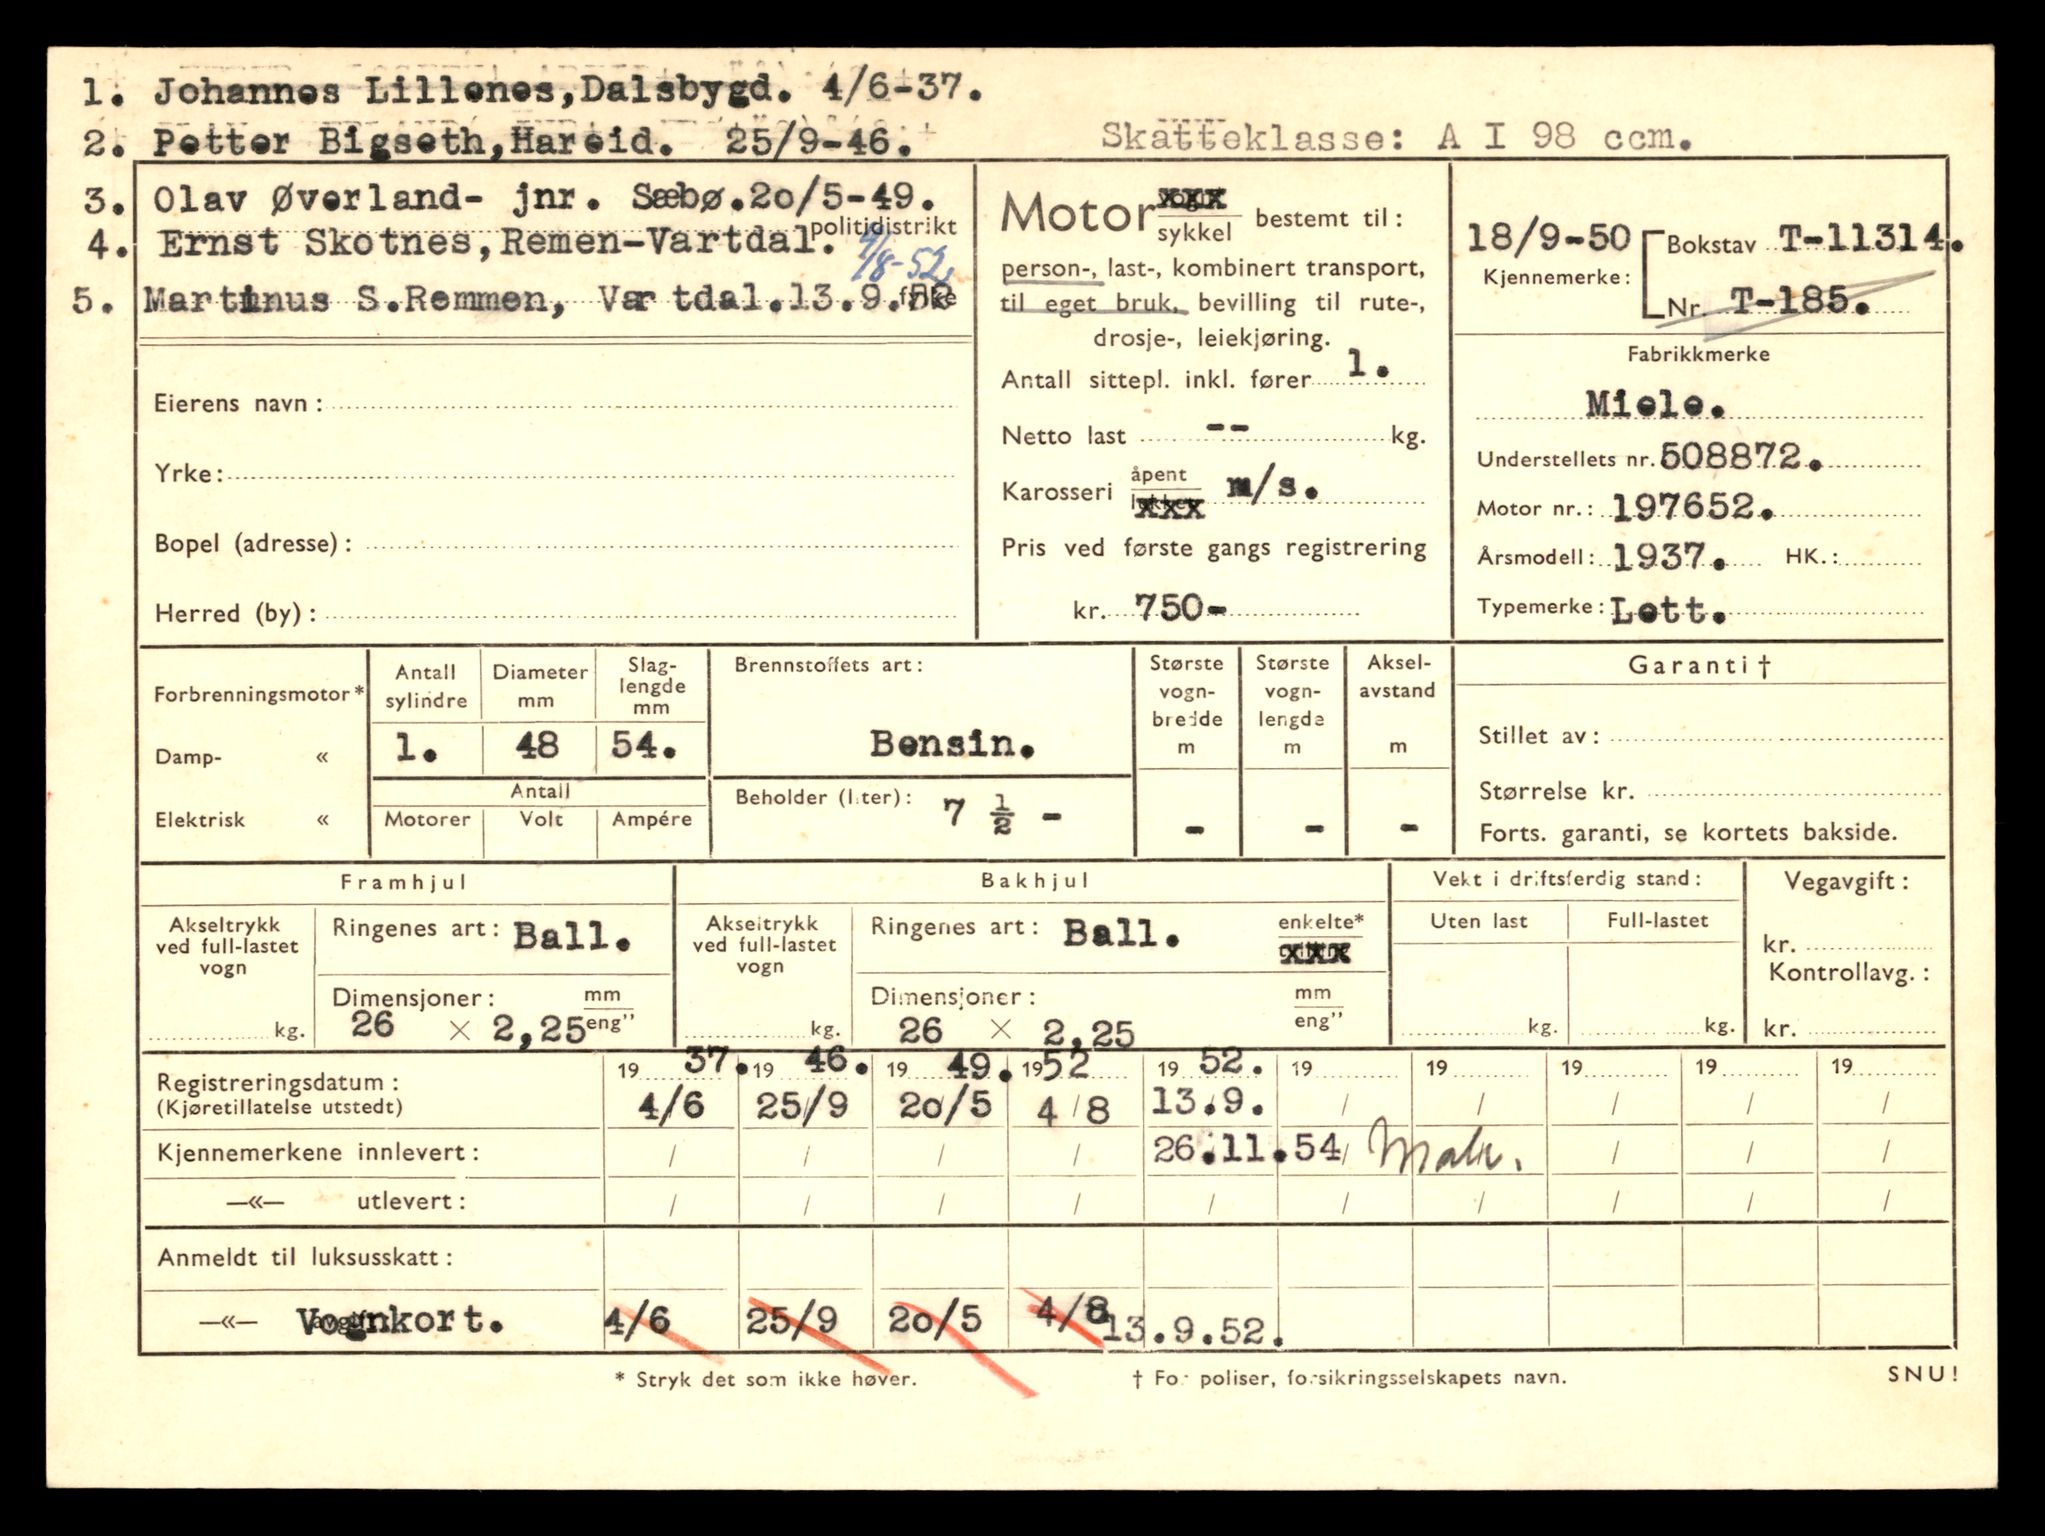 1. Johannes Lillenes, Dalsbygd. 4/6-37.
2. Petter Bigseth, Hareid. 25/9-46.
Skatteklasse: A I 98 ccm.
3. Olav Øverland- jnr. Sæbø. 20/5-49.
politidistrikt
4. Ernst Skotnes, Remen-Vartdal. 4/8-52.
5. Martinus S. Remmen, Vartdal. 13.9.52
fylke
Eierens navn:
Yrke:
Bopel (adresse):
Herred (by):
Motor xxx
sykkel bestemt til:
person-, last-, kombinert transport,
til eget bruk, bevilling til rute-,
drosje-, leiekjøring.
Antall sittepl. inkl. fører 1.
Netto last -- kg.
Karosseri åpent m/s.
xxx
Pris ved første gangs registrering
kr. 750-
18/9-50 Bokstav T-11314.
Kjennemerke:
Nr. T-185.
Fabrikkmerke
Miele.
Understellets nr. 508872.
Motor nr.: 197652.
Årsmodell: 1937. HK.:
Typemerke: Lett.
Forbrenningsmotor*
Damp- «
Elektrisk «
Antall sylindre Diameter mm Slag-lengde mm
1. 48 54.
Antall
Motorer Volt Ampére
Brennstoffets art:
Bensin.
Beholder (liter): 7 ½ -
Største vogn-bredde m
-
Største vogn-lengde m
-
Aksel-avstand m
-
Garanti †
Stillet av:
Størrelse kr.
Forts. garanti, se kortets bakside.
Framhjul
Akseltrykk ved full-lastet vogn
kg.
Ringenes art: Ball.
Dimensjoner: mm
26 × 2,25 eng"
Bakhjul
Akseltrykk ved full-lastet vogn
kg.
Ringenes art: Ball. enkelte*
xxx
Dimensjoner: mm
26 × 2,25 eng"
Vekt i driftsferdig stand:
Uten last Full-lastet
kg. kg.
Vegavgift:
kr.
Kontrollavg.:
kr.
19 37. 19 46. 19 49. 19 52 19 52. 19 19 19 19 19
Registreringsdatum:
(Kjøretillatelse utstedt) 4/6 25/9 20/5 4/8 13.9. / / / / /
Kjennemerkene innlevert: / / / / 26.11.54 / / / /
—«— utlevert: / / / / / / / / / /
Anmeldt til luksusskatt:
—«— Vognkort. 4/6 25/9 20/5 4/8 13.9.52.
* Stryk det som ikke høver.
† For poliser, forsikringsselskapets navn.
SNU!